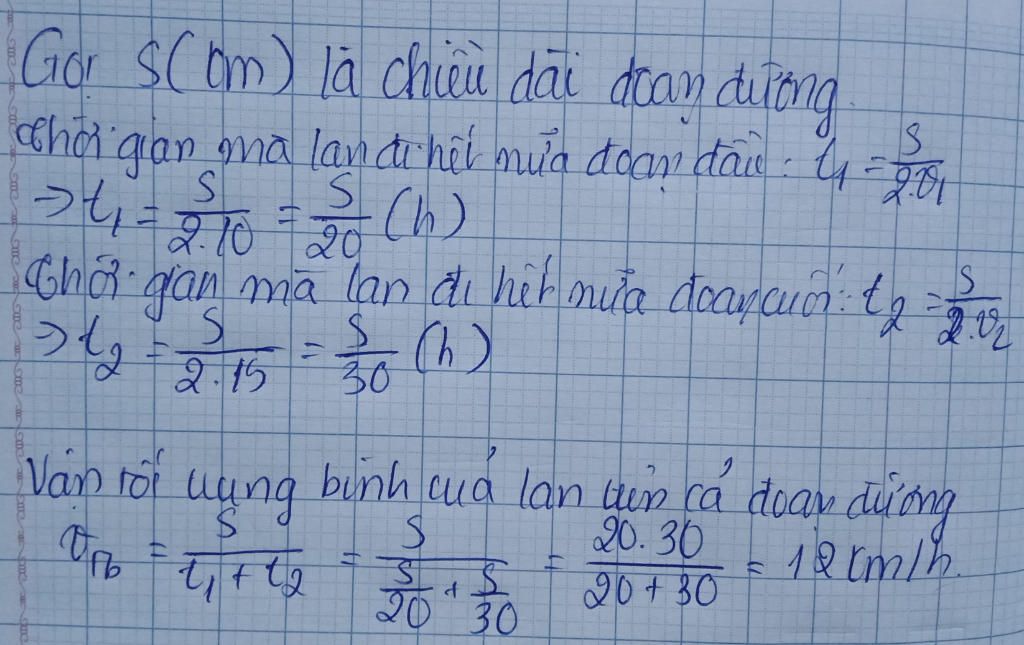 Gọi S(km) là chiều dài đoạn đường.
Thời gian mà lan đi hết nửa đoạn đầu: t₁ = S/2.v₁
=> t₁ = S/2.10 = S/20 (h)
Thời gian mà lan đi hết nửa đoạn cuối: t₂ = S/2.v₂
=> t₂ = S/2.15 = S/30 (h)
Vận tốc trung bình của lan trên cả đoạn đường
v_tb = S/(t₁ + t₂) = S/(S/20 + S/30) = 20.30/(20 + 30) = 12 km/h.